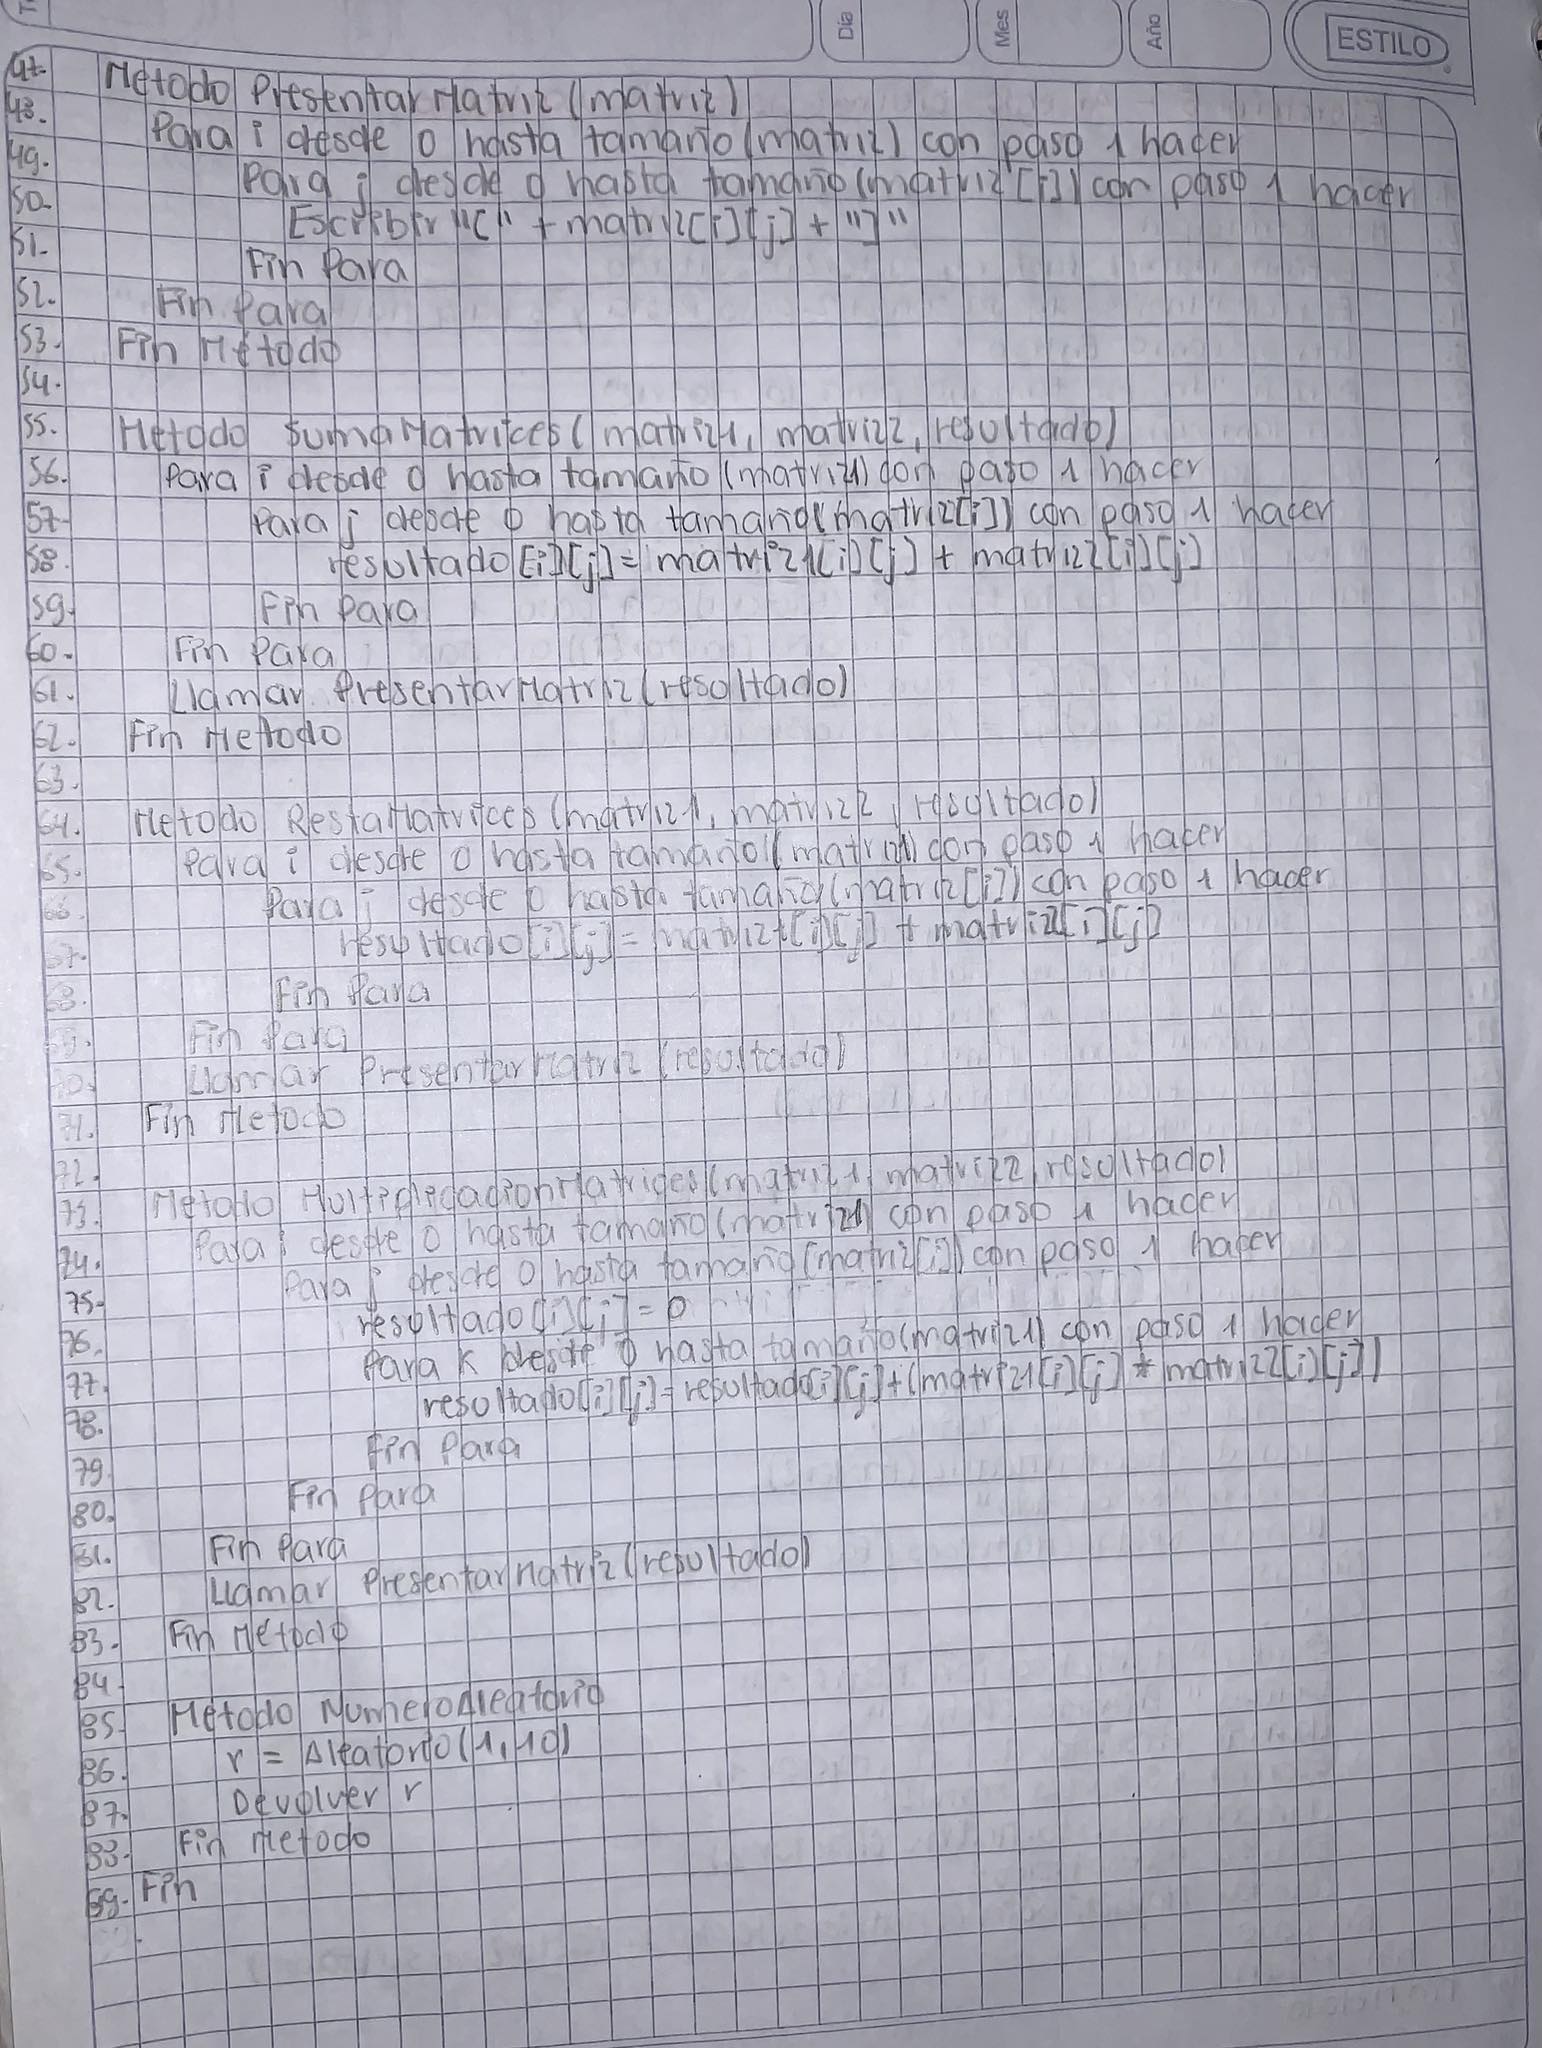 Día
Mes
Año
ESTILO
47. Metodo PresentarMatriz (matriz)
48. Para i desde 0 hasta tamaño (matriz) con paso 1 hacer
49. Para j desde 0 hasta tamaño (matriz[i]) con paso 1 hacer
50. Escribir "[" + matriz[i][j] + "]"
51. Fin Para
52. Fin Para
53. Fin Metodo
54.
55. Metodo SumaMatrices (matriz1, matriz2, resultado)
56. Para i desde 0 hasta tamaño (matriz1) con paso 1 hacer
57. Para j desde 0 hasta tamaño (matriz[i]) con paso 1 hacer
58. resultado[i][j] = matriz1[i][j] + matriz2[i][j]
59. Fin Para
60. Fin Para
61. Llamar PresentarMatriz (resultado)
62. Fin Metodo
63.
64. Metodo RestaMatrices (matriz1, matriz2, resultado)
65. Para i desde 0 hasta tamaño (matriz1) con paso 1 hacer
66. Para j desde 0 hasta tamaño (matriz[i]) con paso 1 hacer
67. resultado[i][j] = matriz1[i][j] + matriz2[i][j]
68. Fin Para
69. Fin Para
70. Llamar PresentarMatriz (resultado)
71. Fin Metodo
72.
73. Metodo MultiplicacionMatrices (matriz1, matriz2, resultado)
74. Para i desde 0 hasta tamaño (matriz1) con paso 1 hacer
75. Para j desde 0 hasta tamaño (matriz[i]) con paso 1 hacer
76. resultado[i][j] = 0
77. Para k desde 0 hasta tamaño (matriz1) con paso 1 hacer
78. resultado[i][j] = resultado[i][j] + (matriz1[i][j] * matriz2[i][j])
79. Fin Para
80. Fin Para
81. Fin Para
82. Llamar PresentarMatriz (resultado)
83. Fin Metodo
84.
85. Metodo NumeroAleatorio
86. r = Aleatorio (1, 10)
87. Devolver r
88. Fin Metodo
89. Fin